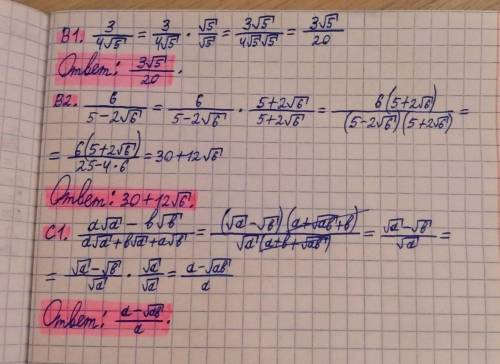 B1. 3/(4√5) = 3/(4√5) · √5/√5 = 3√5/(4√5√5) = 3√5/20
Ответ: 3√5/20.
B2. 6/(5-2√6) = 6/(5-2√6) · (5+2√6)/(5+2√6) = 6(5+2√6)/((5-2√6)(5+2√6)) =
= 6(5+2√6)/(25-4·6) = 30+12√6
Ответ: 30+12√6.
C1. (a√a - b√b)/(a√a+b√a+a√b) = (√a-√b)(a+√ab+b)/(√a(a+b+√ab)) = (√a-√b)/√a =
= (√a-√b)/√a · √a/√a = (a-√ab)/a
Ответ: (a-√ab)/a.